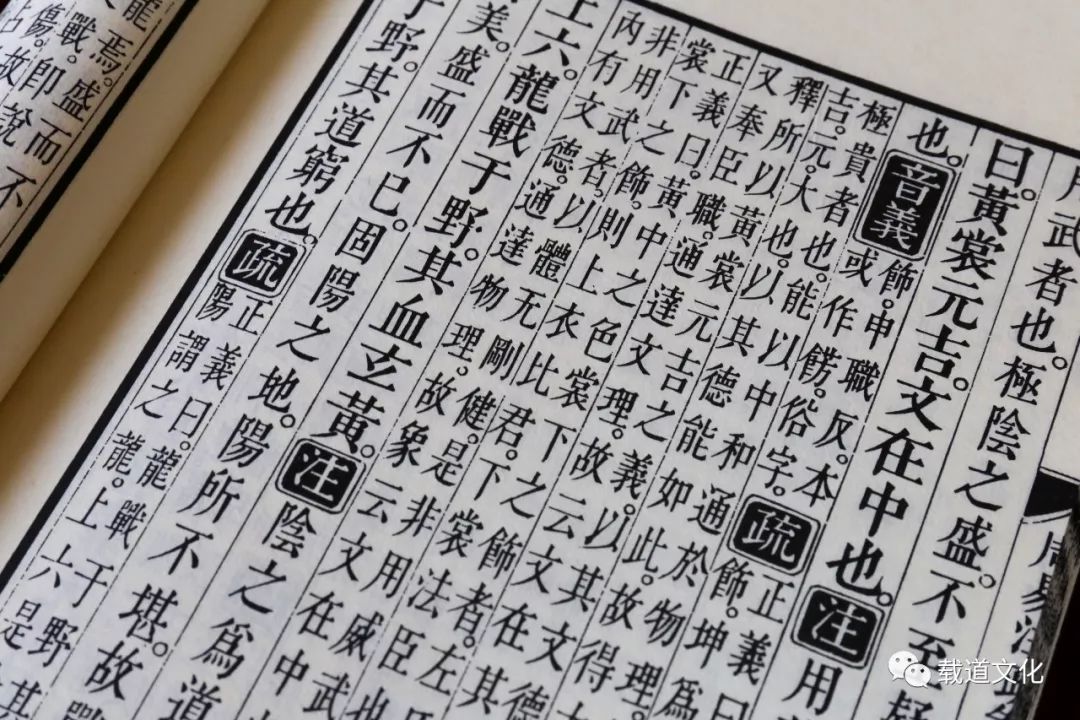 用武者也。極陰之盛。不至疑
曰。黃裳元吉。文在中也。注用
也。音義飾。申職反。本
或作餝。俗字。疏正義曰
飾。坤爲
極貴者也。能以中和通於物理。
吉。元大也。以其德能如此。故得
釋所以黃裳元吉之義。以其文德
又奉臣職。通達文理。故云文在其
正義曰。黃中之色
裳下之飾。則上衣比君。下裳法臣也
非用武者。以體无剛健。是非用威武
內有文德。通達物理。故象云文在中
上六。龍戰于野。其血玄黃。注陰之爲道
美。盛而不已。固陽之地。陽所不堪。故
于野。其道窮也。疏正義曰。龍戰于野
陽謂之龍。上六是
龍焉。盛而不
戰。卽說
傷。故
载道文化